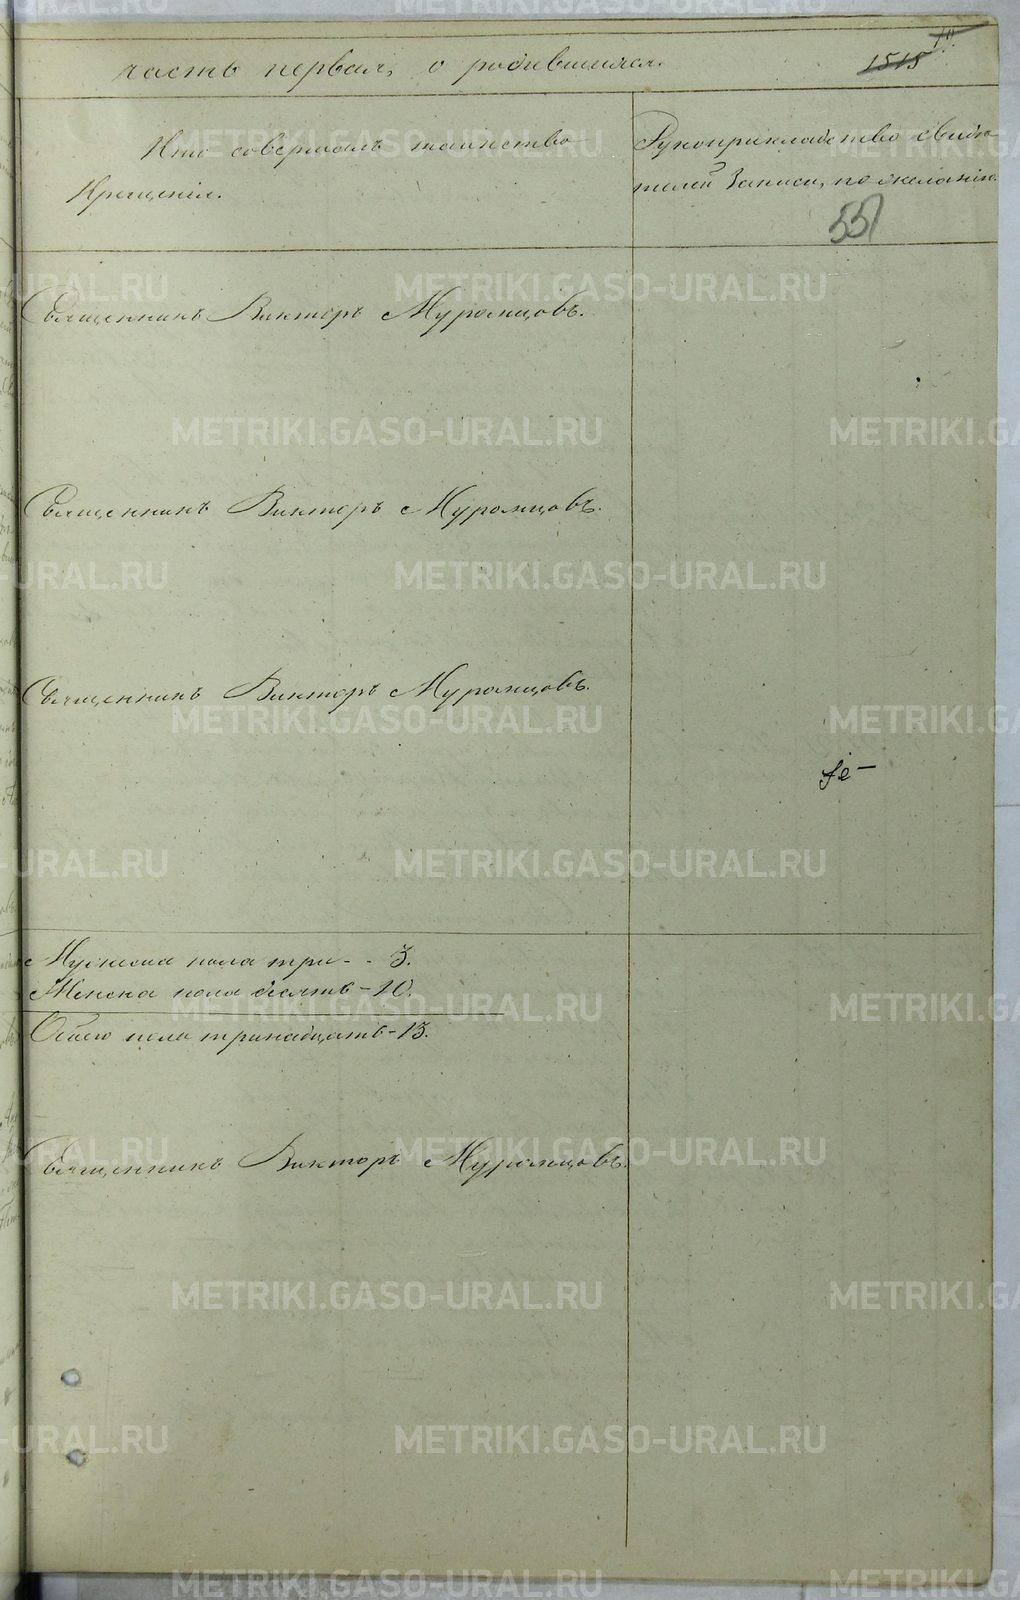 часть первая, о родившихся.
1515
Кто совершалъ таинство
Крещенія.
Рукоприкладство свидѣ-
телей записи, по желанію.
557
Священникъ Викторъ Муромцовъ.
Священникъ Викторъ Муромцовъ.
Священникъ Викторъ Муромцовъ.
Мужеска пола три - - 3.
Женска пола десять - 10.
Обоего пола тринадцать - 13.
Священникъ Викторъ Муромцовъ.
METRIKI.GASO-URAL.RU